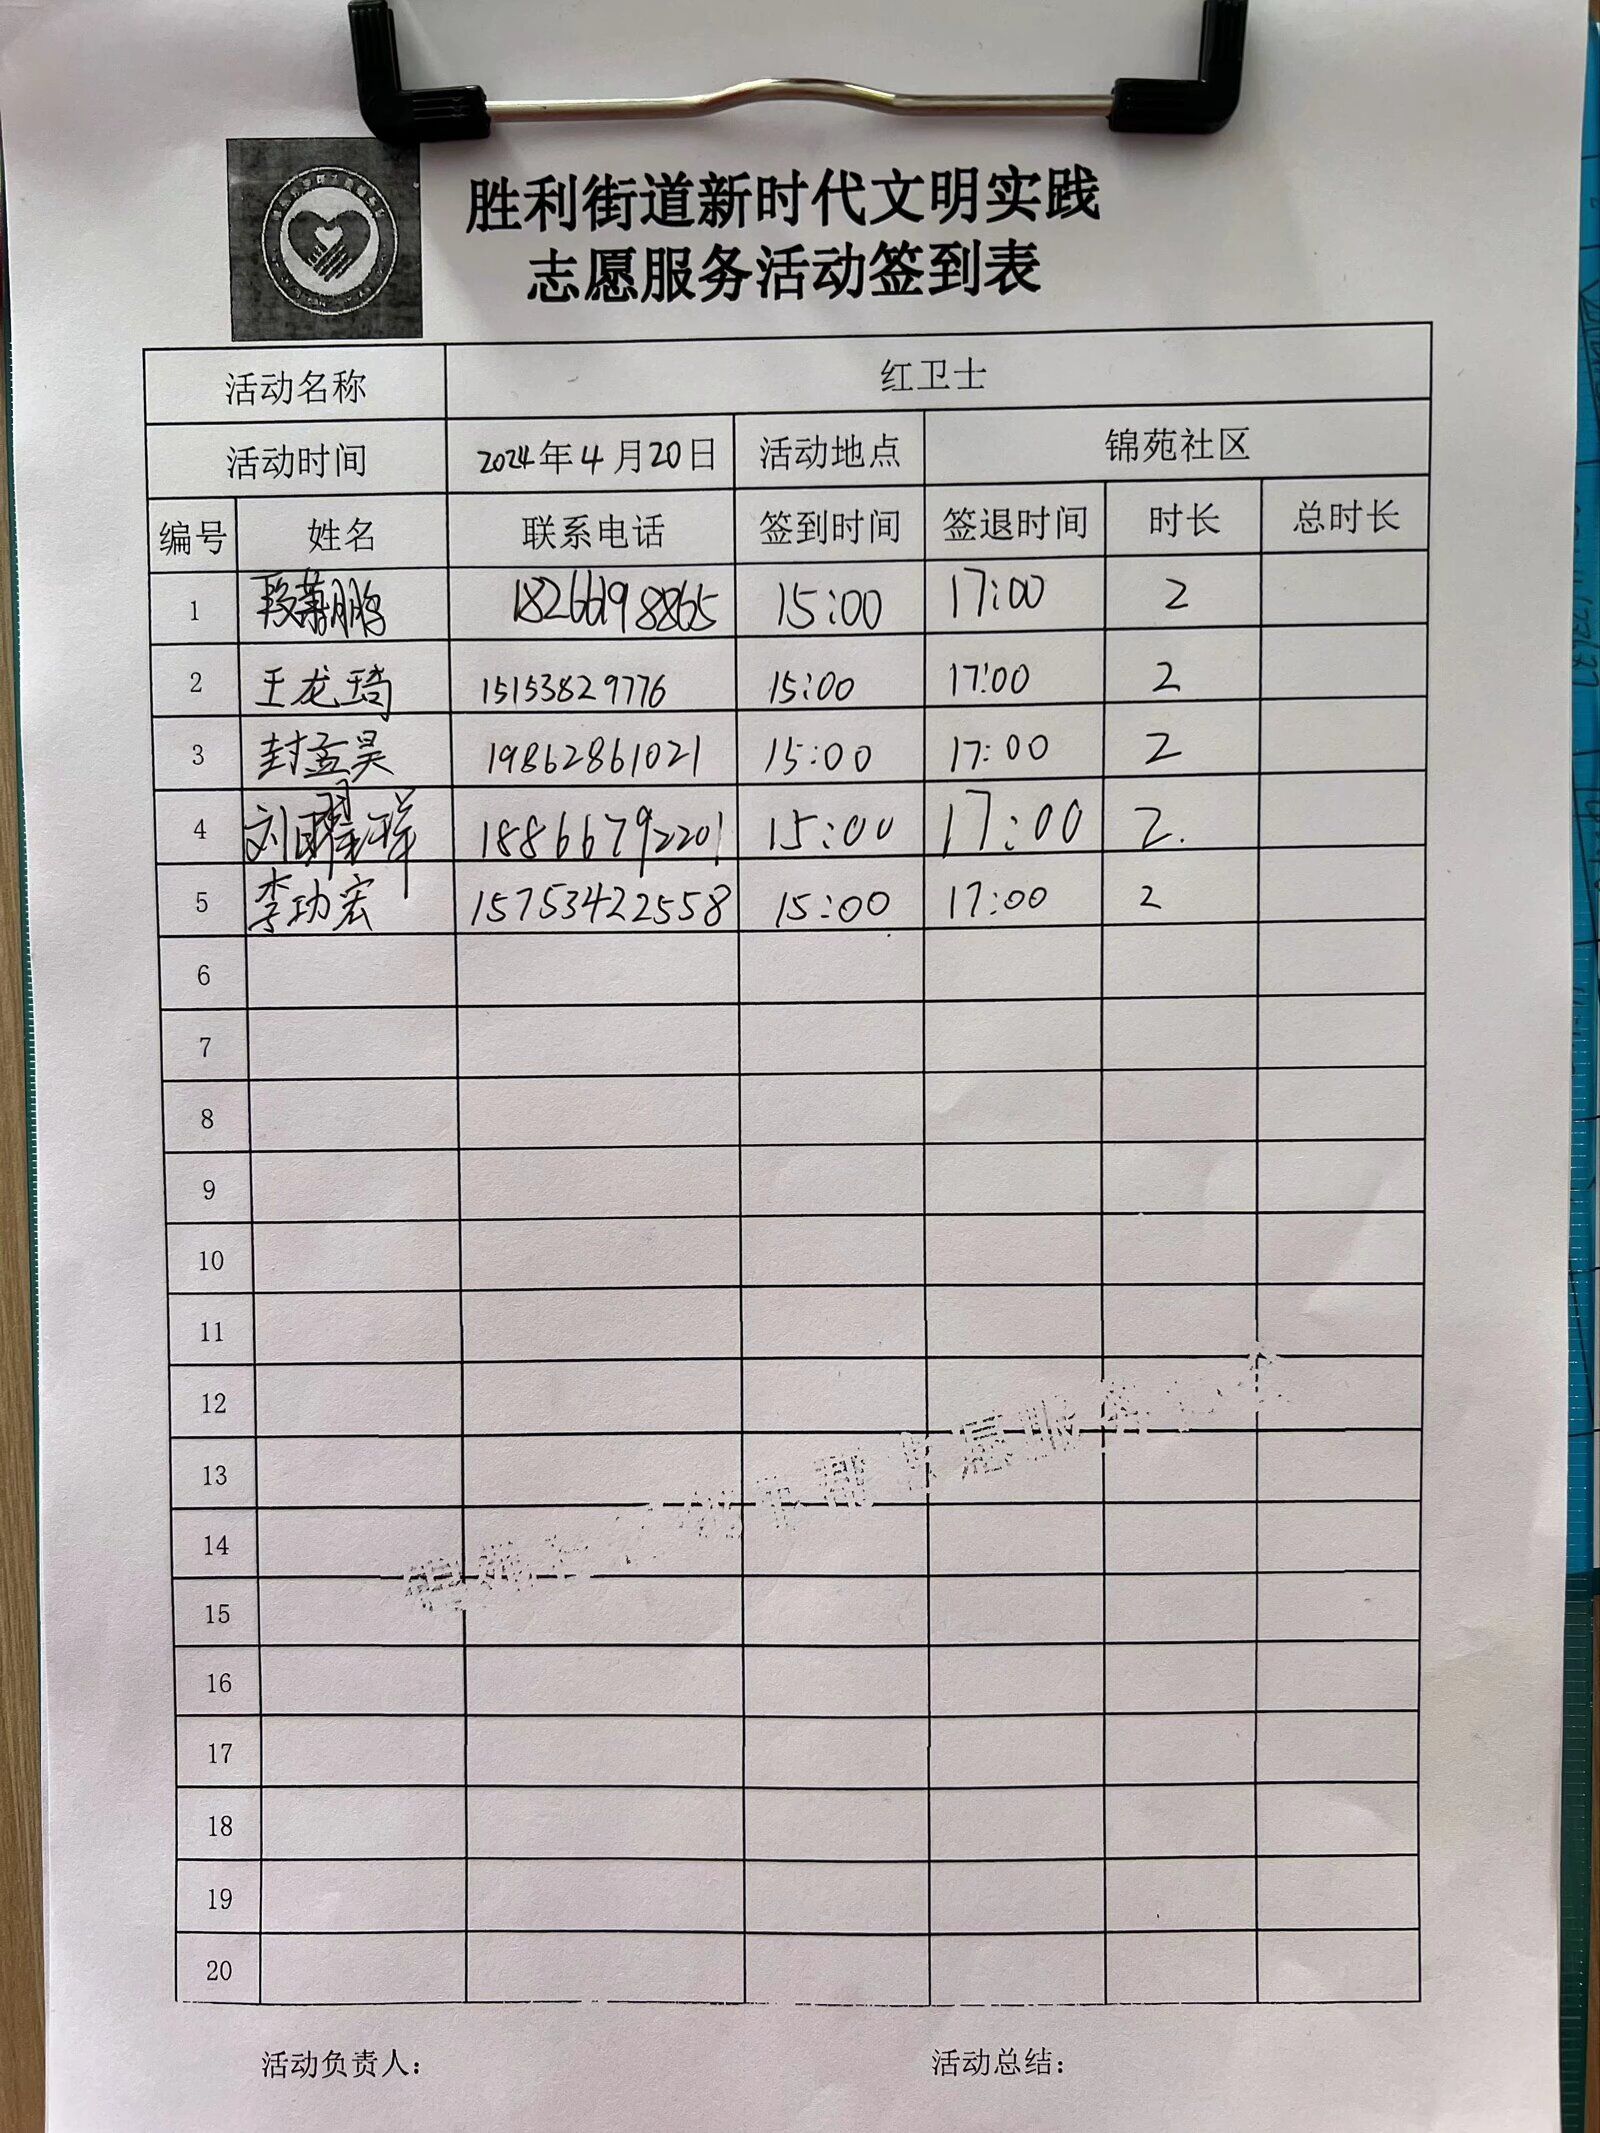 胜利街道新时代文明实践
志愿服务活动签到表
活动名称 红卫士
活动时间 2024年4月20日 活动地点 锦苑社区
编号 姓名 联系电话 签到时间 签退时间 时长 总时长
1 段萧鹏 18266198865 15:00 17:00 2
2 王龙琦 15153829776 15:00 17:00 2
3 封孟昊 19862861021 15:00 17:00 2
4 刘曜祥 18866792201 15:00 17:00 2.
5 李功宏 15753422558 15:00 17:00 2
6
7
8
9
10
11
12
13
14
15
16
17
18
19
20
活动负责人: 活动总结: